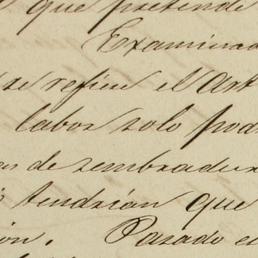 que pretende
Examinado
se refiere el Art
labor solo podr
as de sembradura
tendrian que
ion. Pasado e